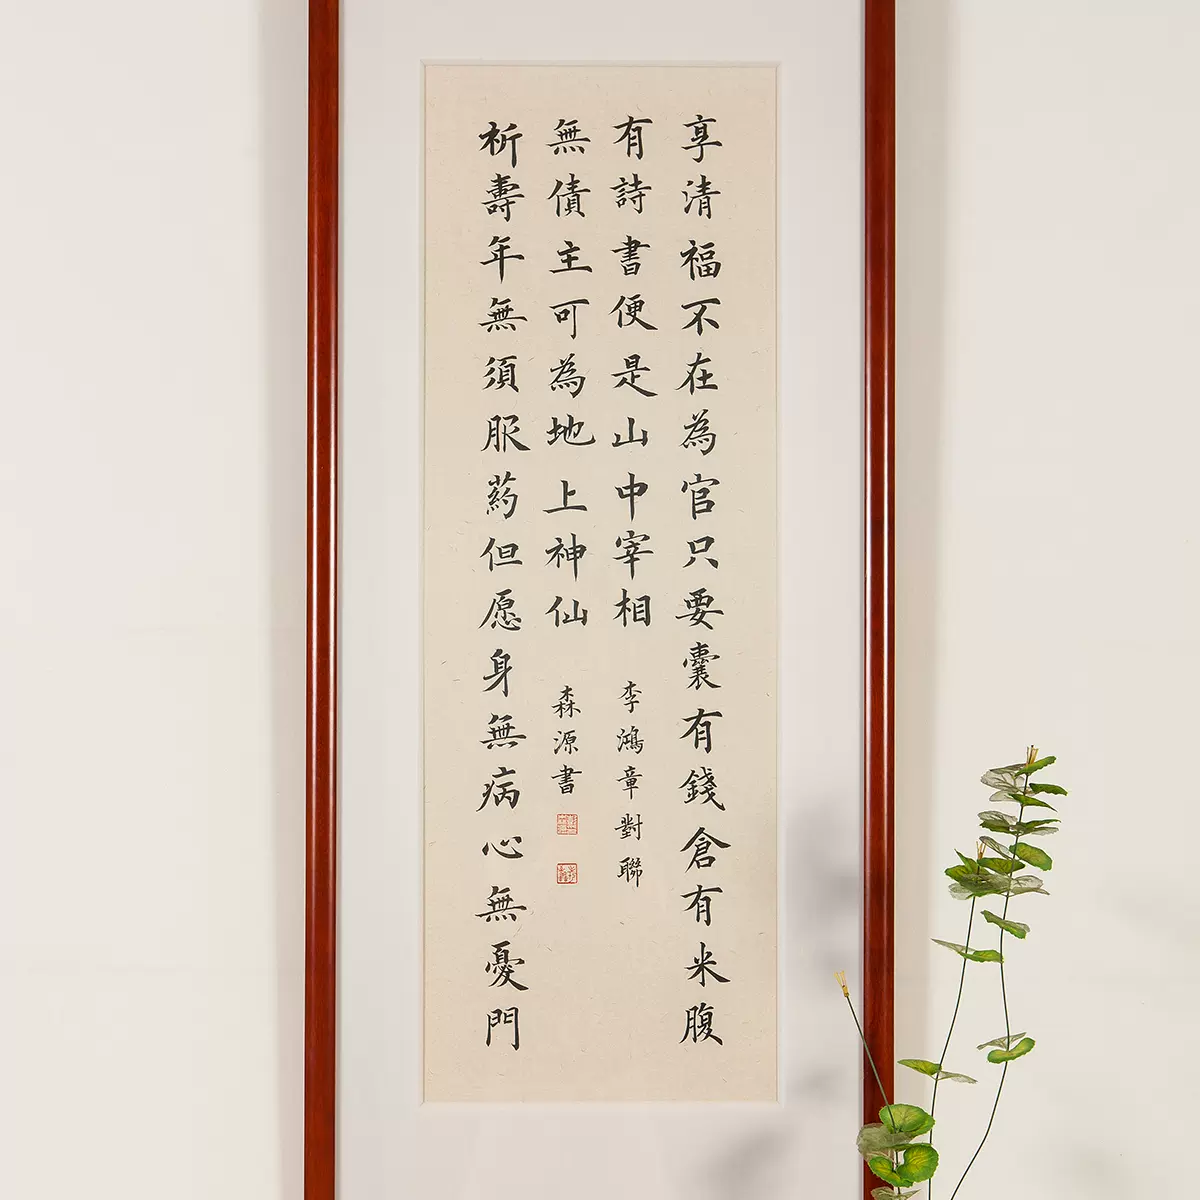 享清福不在為官只要囊有錢倉有米腹
有詩書便是山中宰相
李鴻章對聯
祈壽年無須服葯但愿身無病心無憂門
無債主可為地上神仙
森源書